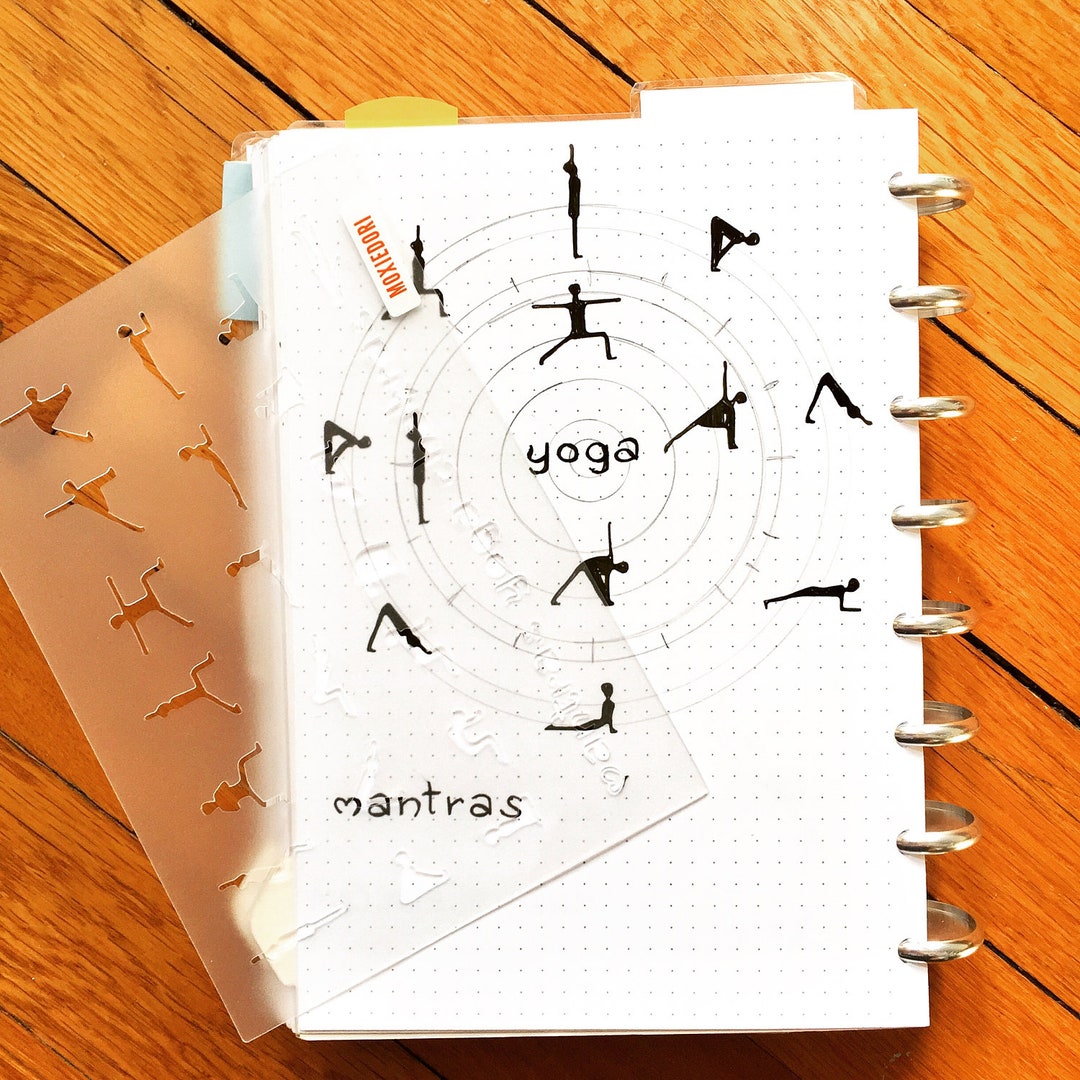 MOXIEDORI
yoga
mantras